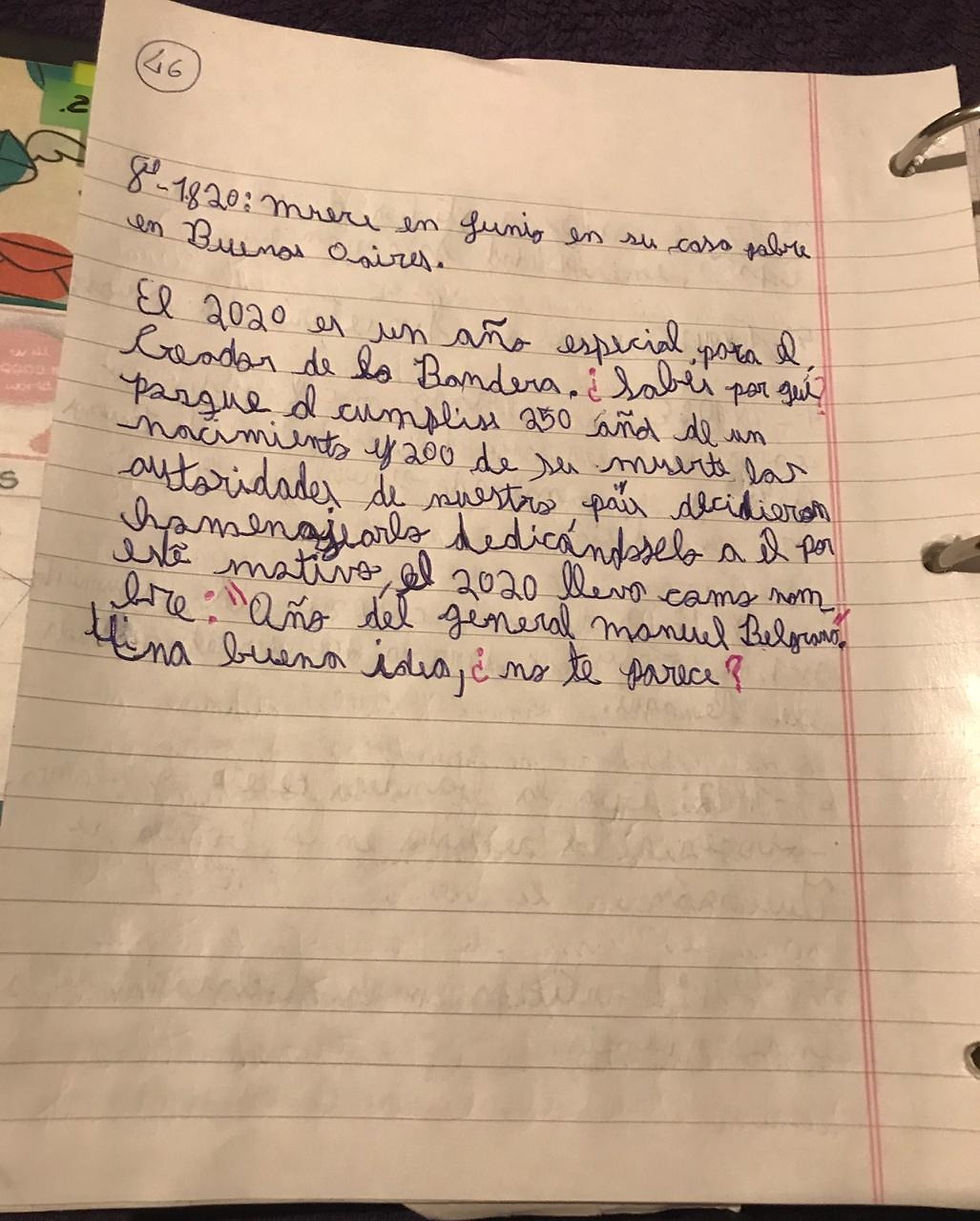 46
8º-1820: Muere en Junio en su casa pobre
en Buenos Aires.
El 2020 es un año especial, para el
Creador de la Bandera. ¿Sabés por qué?
porque al cumplirse 250 años de un
nacimiento y 200 de su muerte las
autoridades de nuestro país decidieron
homenajearlo dedicándoselo a él por
este motivo, el 2020 llevo como nom
bre: "Año del general Manuel Belgrano".
Una buena idea, ¿no te parece?
2.
S